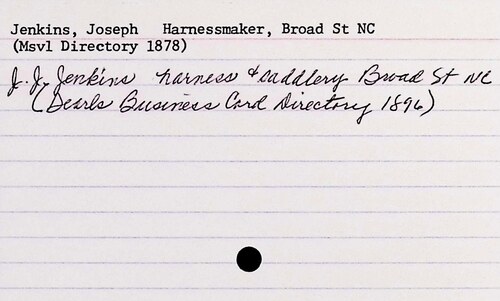 Jenkins, Joseph Harnessmaker, Broad St NC
(Msvl Directory 1878)
J. J. Jenkins harness & saddlery Broad St NC
(Dearls Business Card Directory 1896)